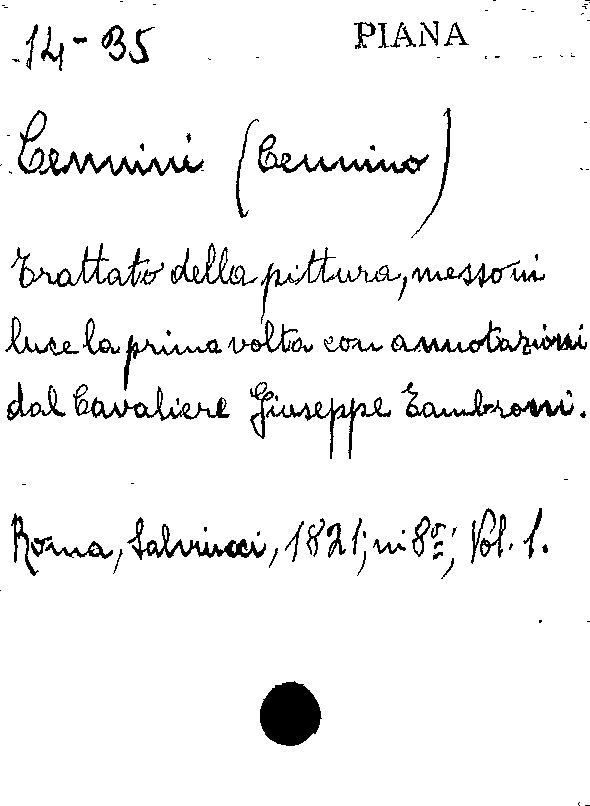 14-B5 PIANA
Cennini (Cennino)
Trattato della pittura, messo in
luce la prima volta con annotazioni
dal Cavaliere Giuseppe Tambroni.
Roma, Salviucci, 1821; in 8º; Vol. 1.